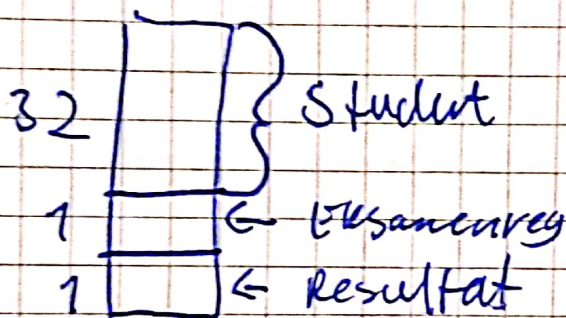 32 Student
1 ← Eksamenreg
1 ← Resultat